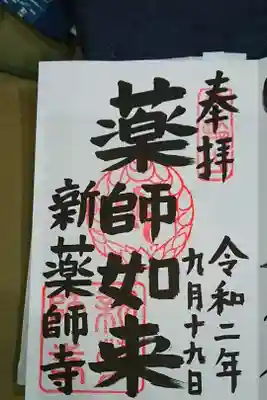 奉拝
令和二年
九月十九日
薬師如来
新薬師寺